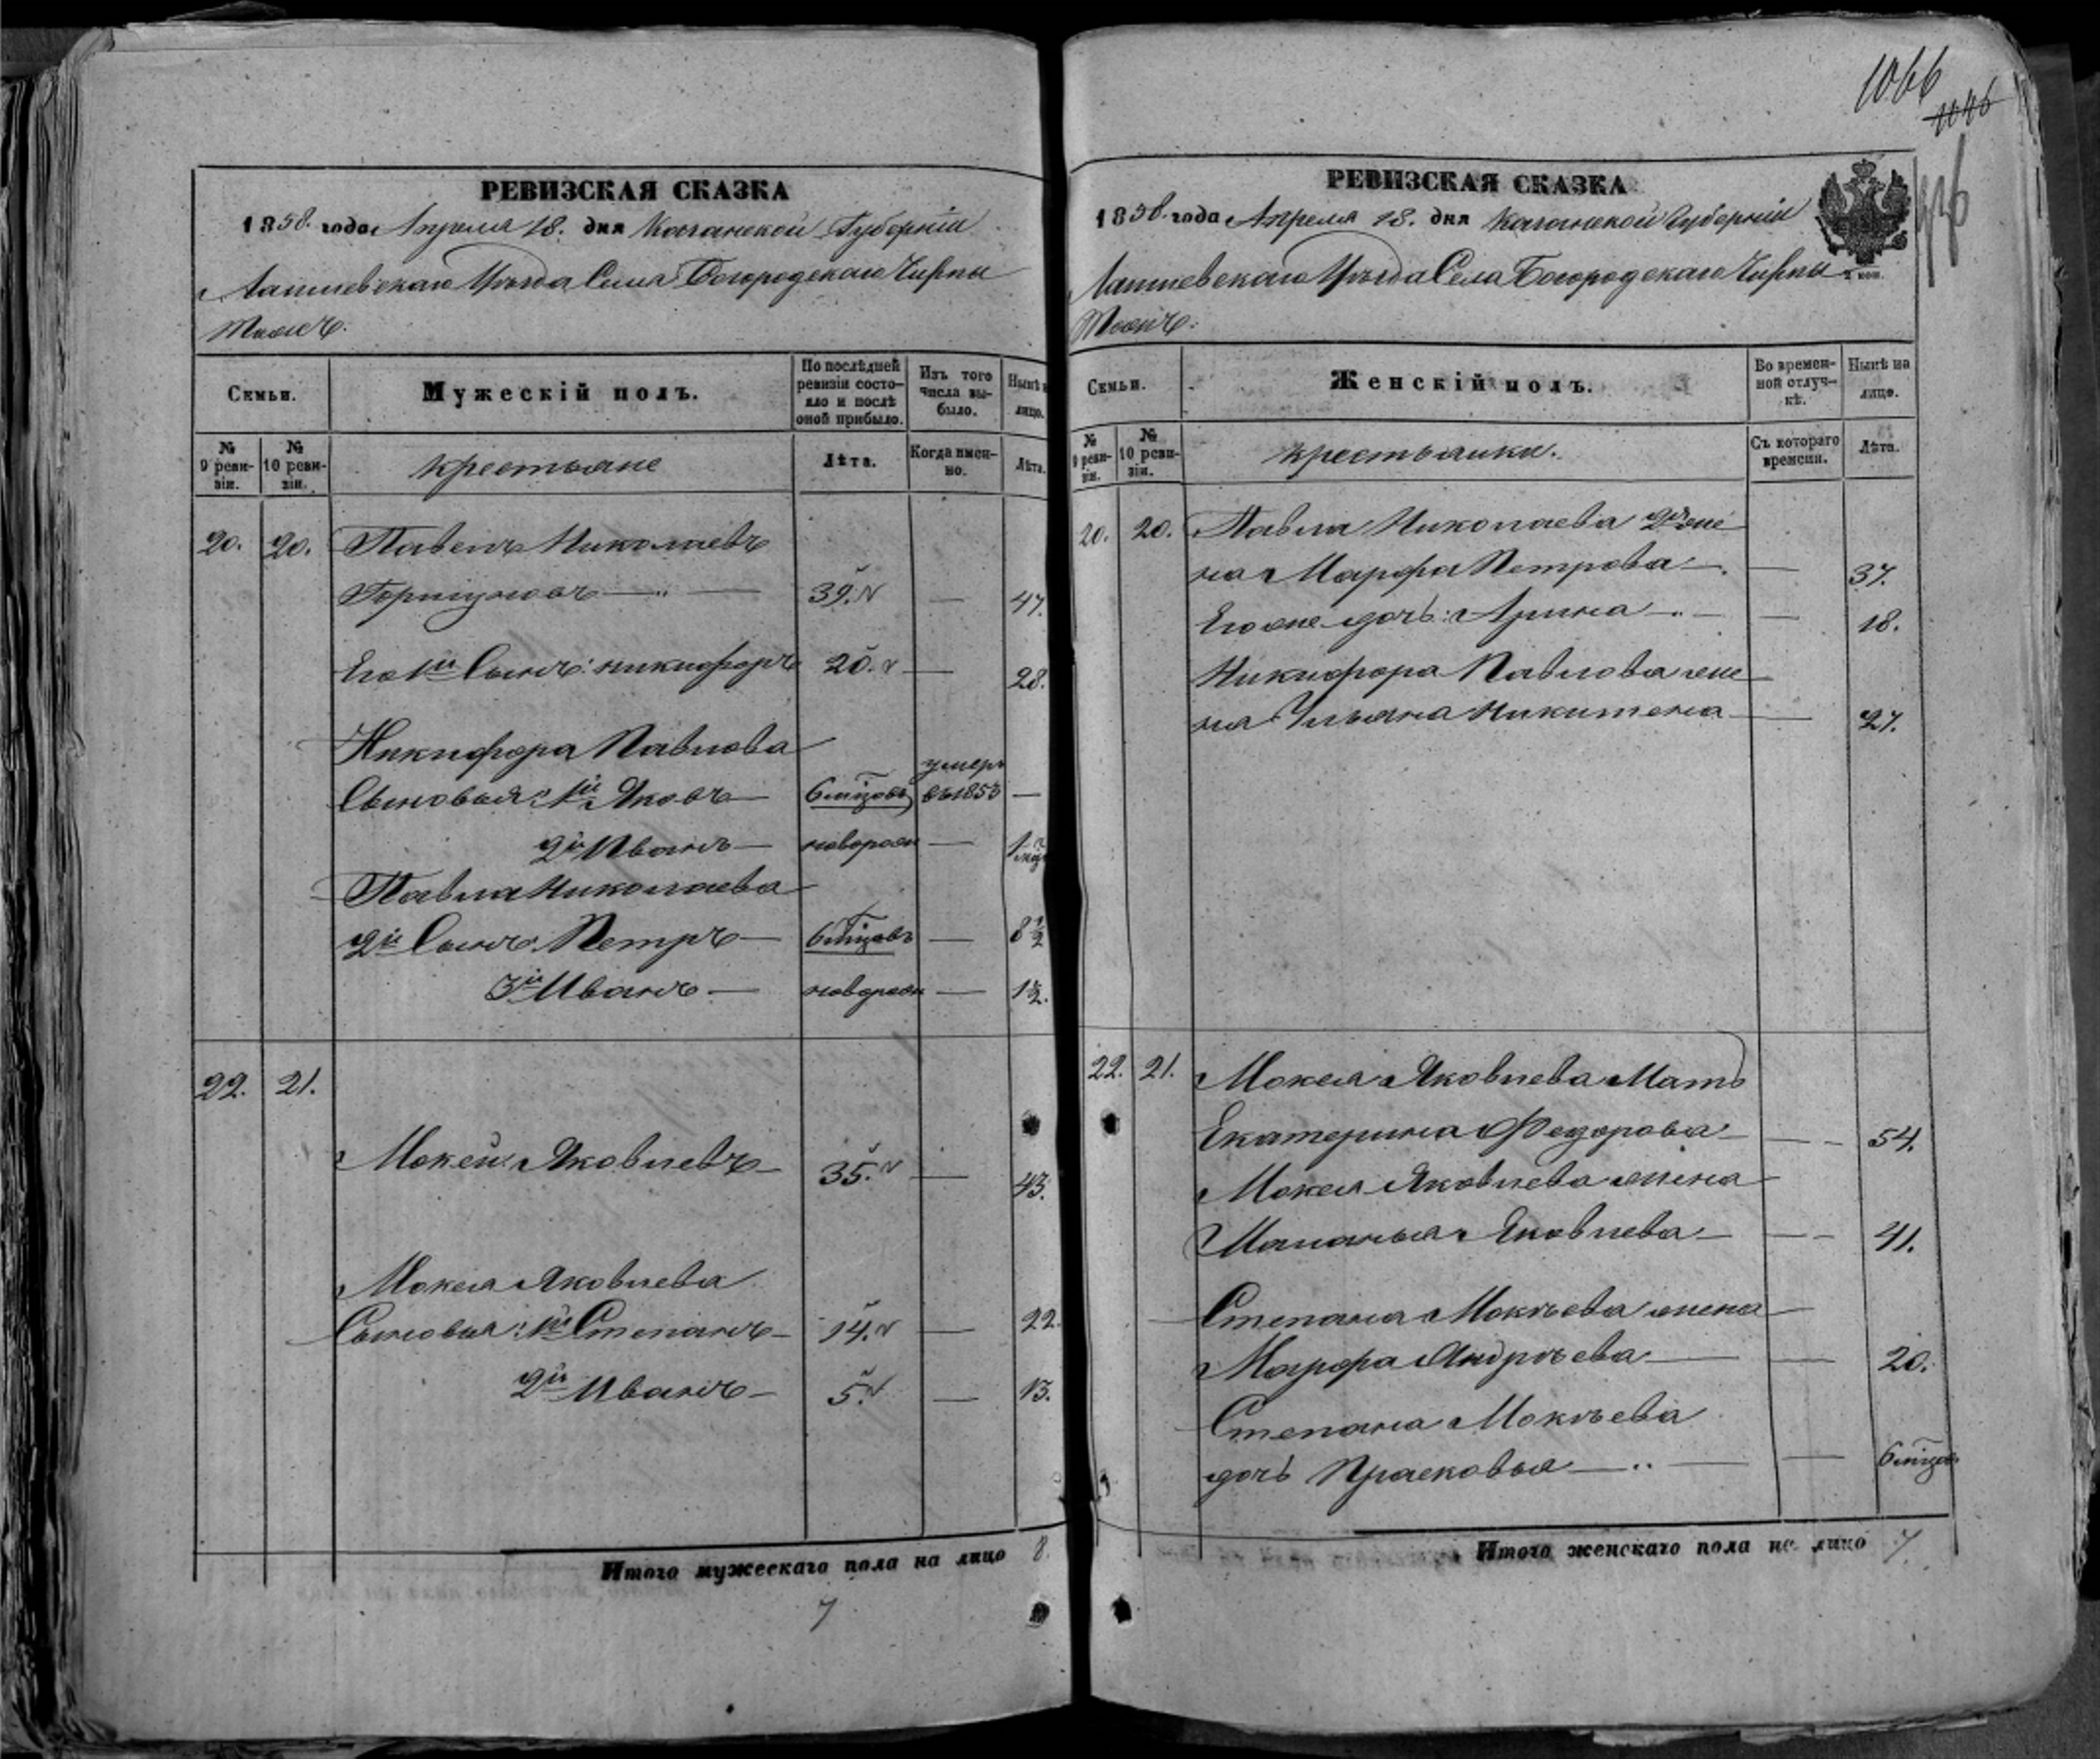 1066
1046
РЕВИЗСКАЯ СКАЗКА
1858. года Апреля 18. дня Казанской Губерніи
Лаишевскаго Уѣзда Села Богородскаго Чирпы
тожъ.
Семьи.
Мужескій полъ.
По послѣдней ревизіи состояло и послѣ оной прибыло.
Изъ того числа выбыло.
Нынѣ на лицо.
№ 9 ревизіи.
№ 10 ревизіи.
крестьяне
Лѣта.
Когда именно.
Лѣта.
20. 20. Павелъ Николаевъ
39. — 47.
Его 1й Сынъ: Никифоръ 20. — 28.
Никифора Павлова
Сыновья: 1й Яковъ — 6 мѣцовъ умеръ въ 1853 —
2й Иванъ — новорож —
Павла Николаева
2й Сынъ Петръ — 6 мѣцовъ — 8 1/2
3й Иванъ — новорож — 1 1/2.
22. 21.
Мокей Яковлевъ — 35. — 43.
Мокея Яковлева
Сыновья: 1й Степанъ — 14. — 22.
2й Иванъ — 5. — 13.
Итого мужескаго пола на лицо 8.
7
РЕВИЗСКАЯ СКАЗКА
1858. года Апреля 18. дня Казанской Губерніи
Лаишевскаго Уѣзда Села Богородскаго Чирпы
тожъ.
2 коп.
Семьи.
Женскій полъ.
Во временной отлучкѣ.
Нынѣ на лицо.
№ 9 ревизіи.
№ 10 ревизіи.
крестьянки.
Съ котораго времени.
Лѣта.
20. 20. Павла Николаева 2я же
на Марфа Петрова — — 37.
Его же дочь: Арина — — 18.
Никифора Павлова же
на Ульяна Никитина — — 27.
22. 21. Мокея Яковлева Мать
Екатерина Федорова — — 54.
Мокея Яковлева жена
Маланья Яковлева — — 41.
Степана Мокѣева жена
Марфа Андрѣева — — 20.
Степана Мокѣева
дочь Прасковья — — 6 мѣцов.
Итого женскаго пола на лицо 7